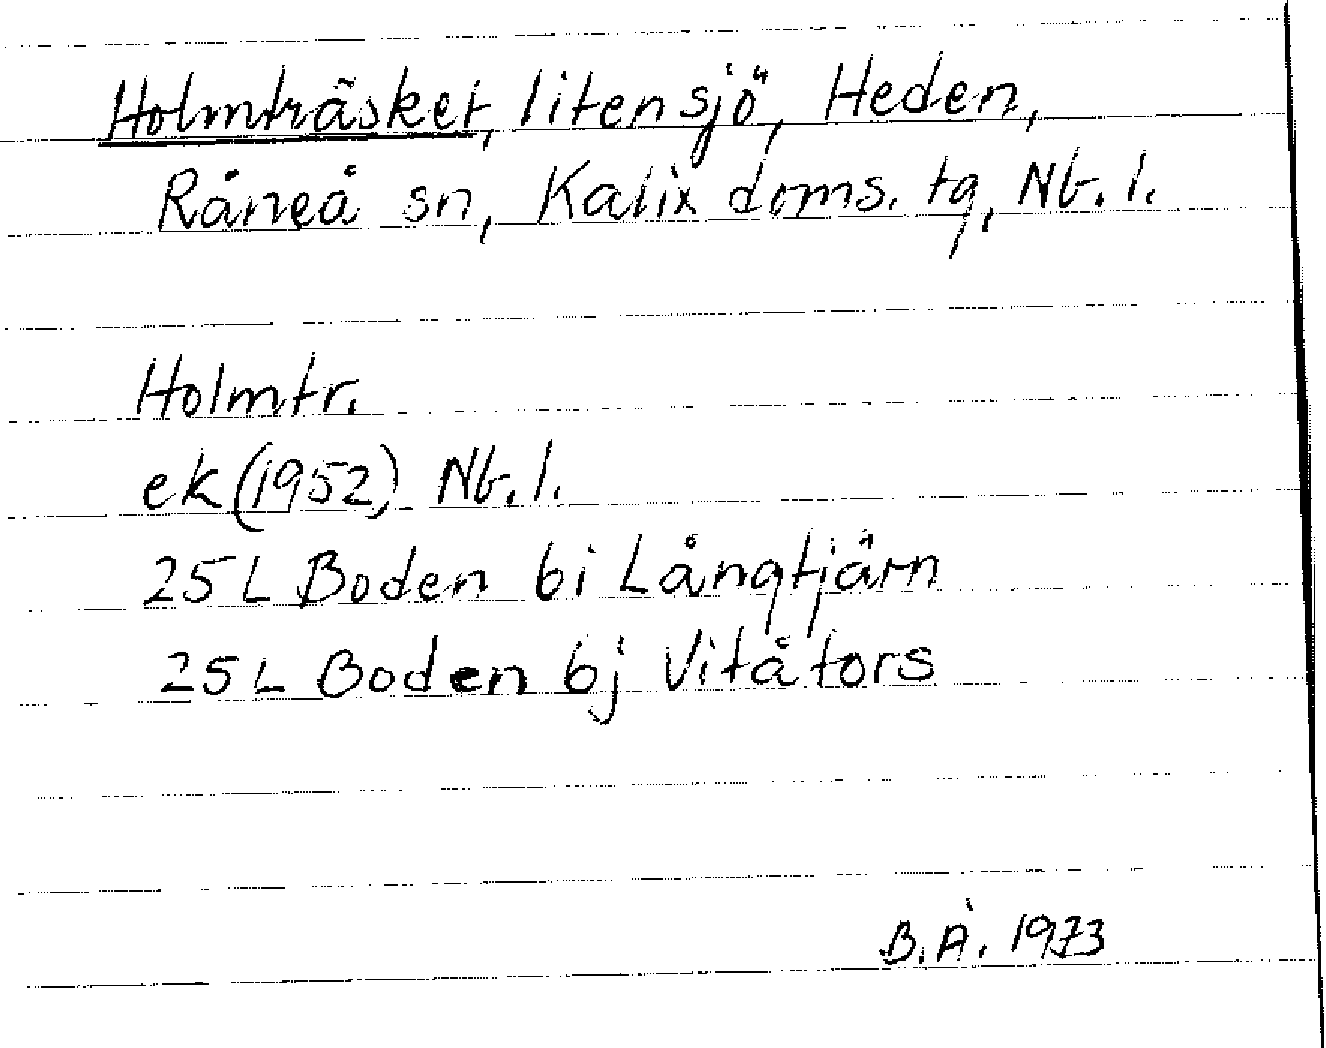 Holmträsket, liten sjö, Heden,
Råneå sn, Kalix doms. tg, Nb. l.
Holmtr.
ek (1952) Nb. l.
25 L Boden 6i Långtjärn
25 L Boden 6j Vitåtors
B. Å. 1973